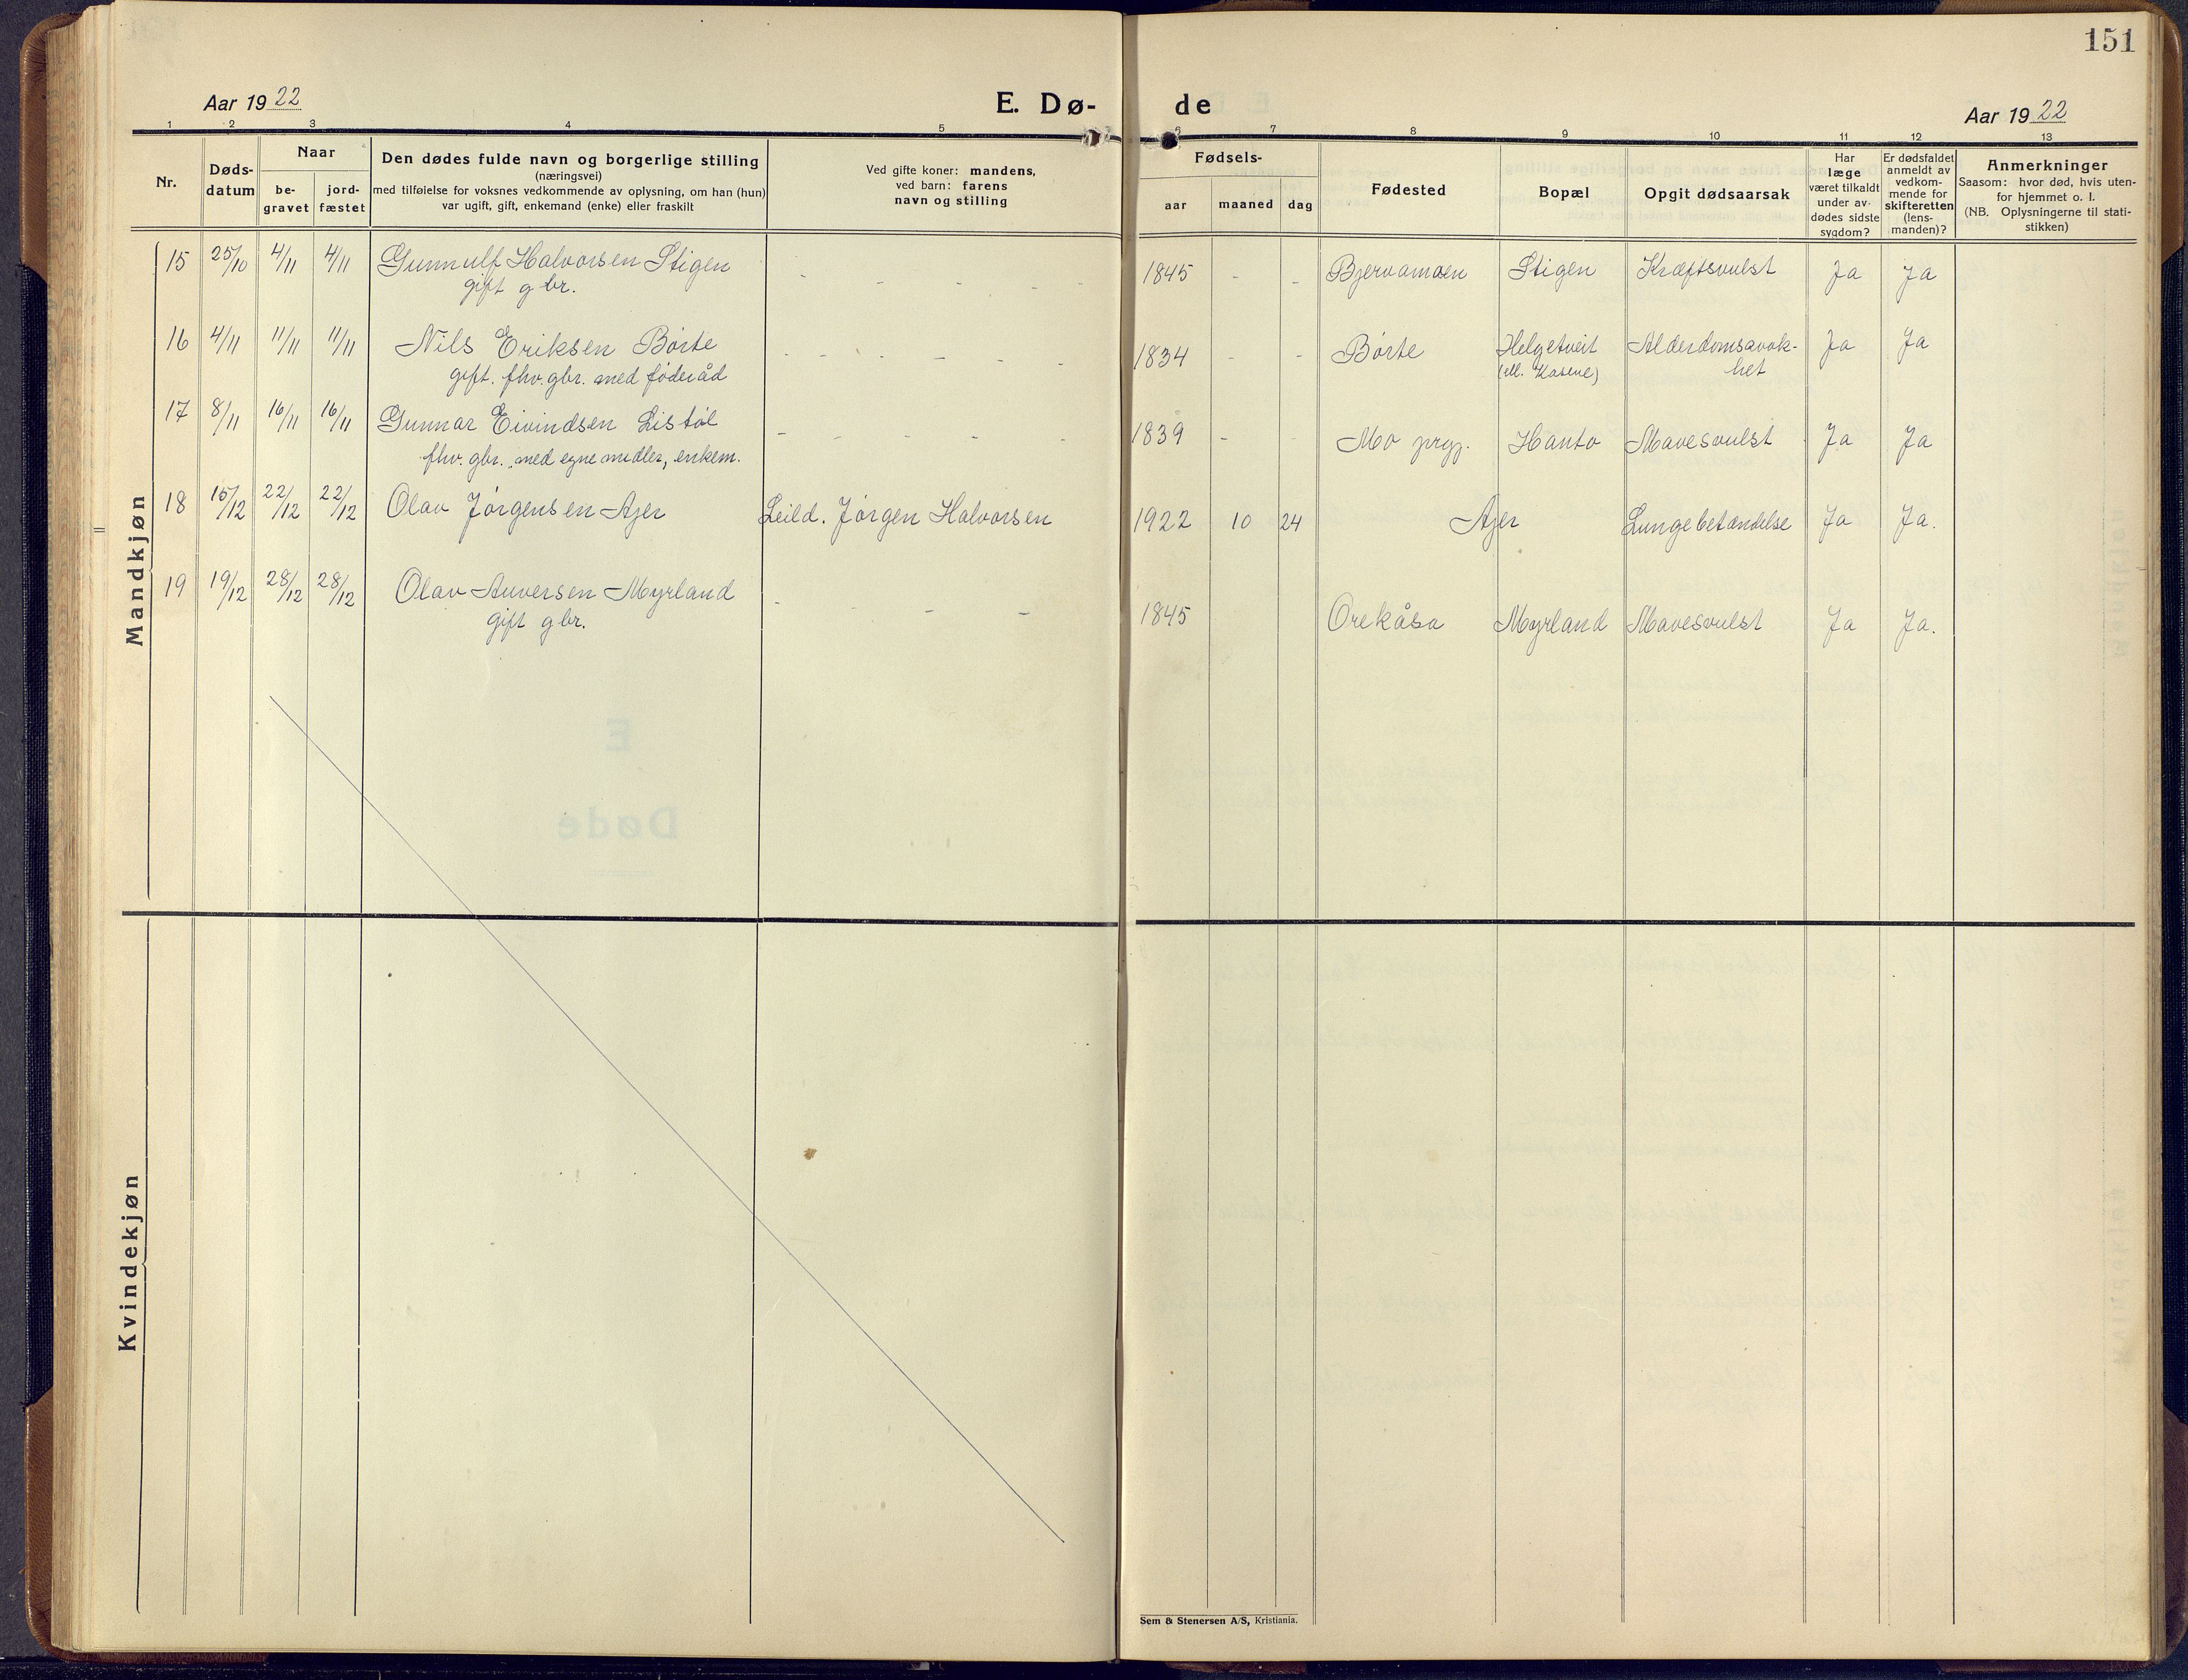 151
Aar 1922
E. Dø-
de
Aar 1922
1 2 3 4 5 6 7 8 9 10 11 12 13
Nr.
Døds-
datum
Naar
be-
gravet
jord-
fæstet
Den dødes fulde navn og borgerlige stilling
(næringsvei)
med tilføielse for voksnes vedkommende av oplysning, om han (hun)
var ugift, gift, enkemand (enke) eller fraskilt
Ved gifte koner: mandens,
ved barn: farens
navn og stilling
Fødsels-
aar maaned dag
Fødested
Bopæl
Opgit dødsaarsak
Har
læge
været tilkaldt
under av-
dødes sidste
sygdom?
Er dødsfaldet
anmeldt av
vedkom-
mende for
skifteretten
(lens-
manden)?
Anmerkninger
Saasom: hvor død, hvis uten-
for hjemmet o. l.
(NB. Oplysningerne til stati-
stikken)
Mandkjøn
15 25/10 4/11 4/11 Gunnulf Halvorsen Stigen - - - - - 1845 - - Bjervamoen Stigen Kræftsvulst Ja Ja
gift gbr.
16 4/11 11/11 11/11 Nils Eriksen Börte - - - - - 1834 - - Börte Helgetveit Alderdomssvak- Ja Ja
gift. fhv. gbr. med föderåd (ell. Kasene) het
17 8/11 16/11 16/11 Gunnar Eivindsen Listöl - - - - - 1839 - - Mo prgj. Hanto Mavesvulst Ja Ja
fhv. gbr. med egne midler, enkem.
18 15/12 22/12 22/12 Olav Jörgensen Ajer Leild. Jörgen Halvorsen 1922 10 24 Ajer Lungebetændelse Ja Ja.
19 19/12 28/12 28/12 Olav Auversen Myrland - - - 1845 Orekåsa Myrland Mavesvulst Ja Ja.
gift gbr.
Kvindekjøn
Sem & Stenersen A/S, Kristiania.